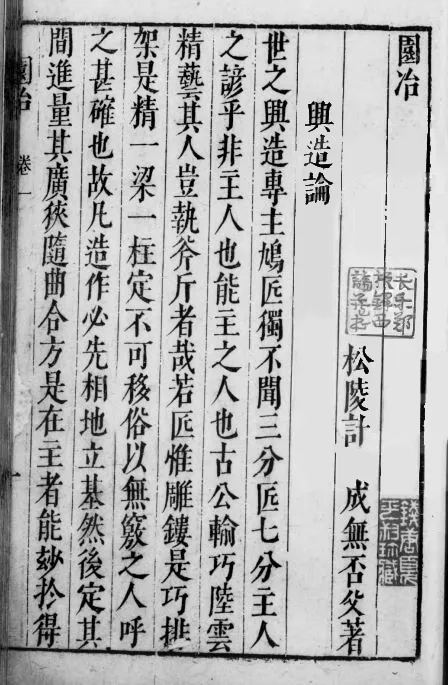 園冶
興造論
松陵計 成無否父著
世之興造專主鳩匠獨不聞三分匠七分主人
之諺乎非主人也能主之人也古公輸巧陸雲
精藝其人豈執斧斤者哉若匠惟雕鏤是巧排
架是精一梁一柱定不可移俗以無竅之人呼
之甚確也故凡造作必先相地立基然後定其
間進量其廣狹隨曲合方是在主者能玅扵得
園冶 卷一
一